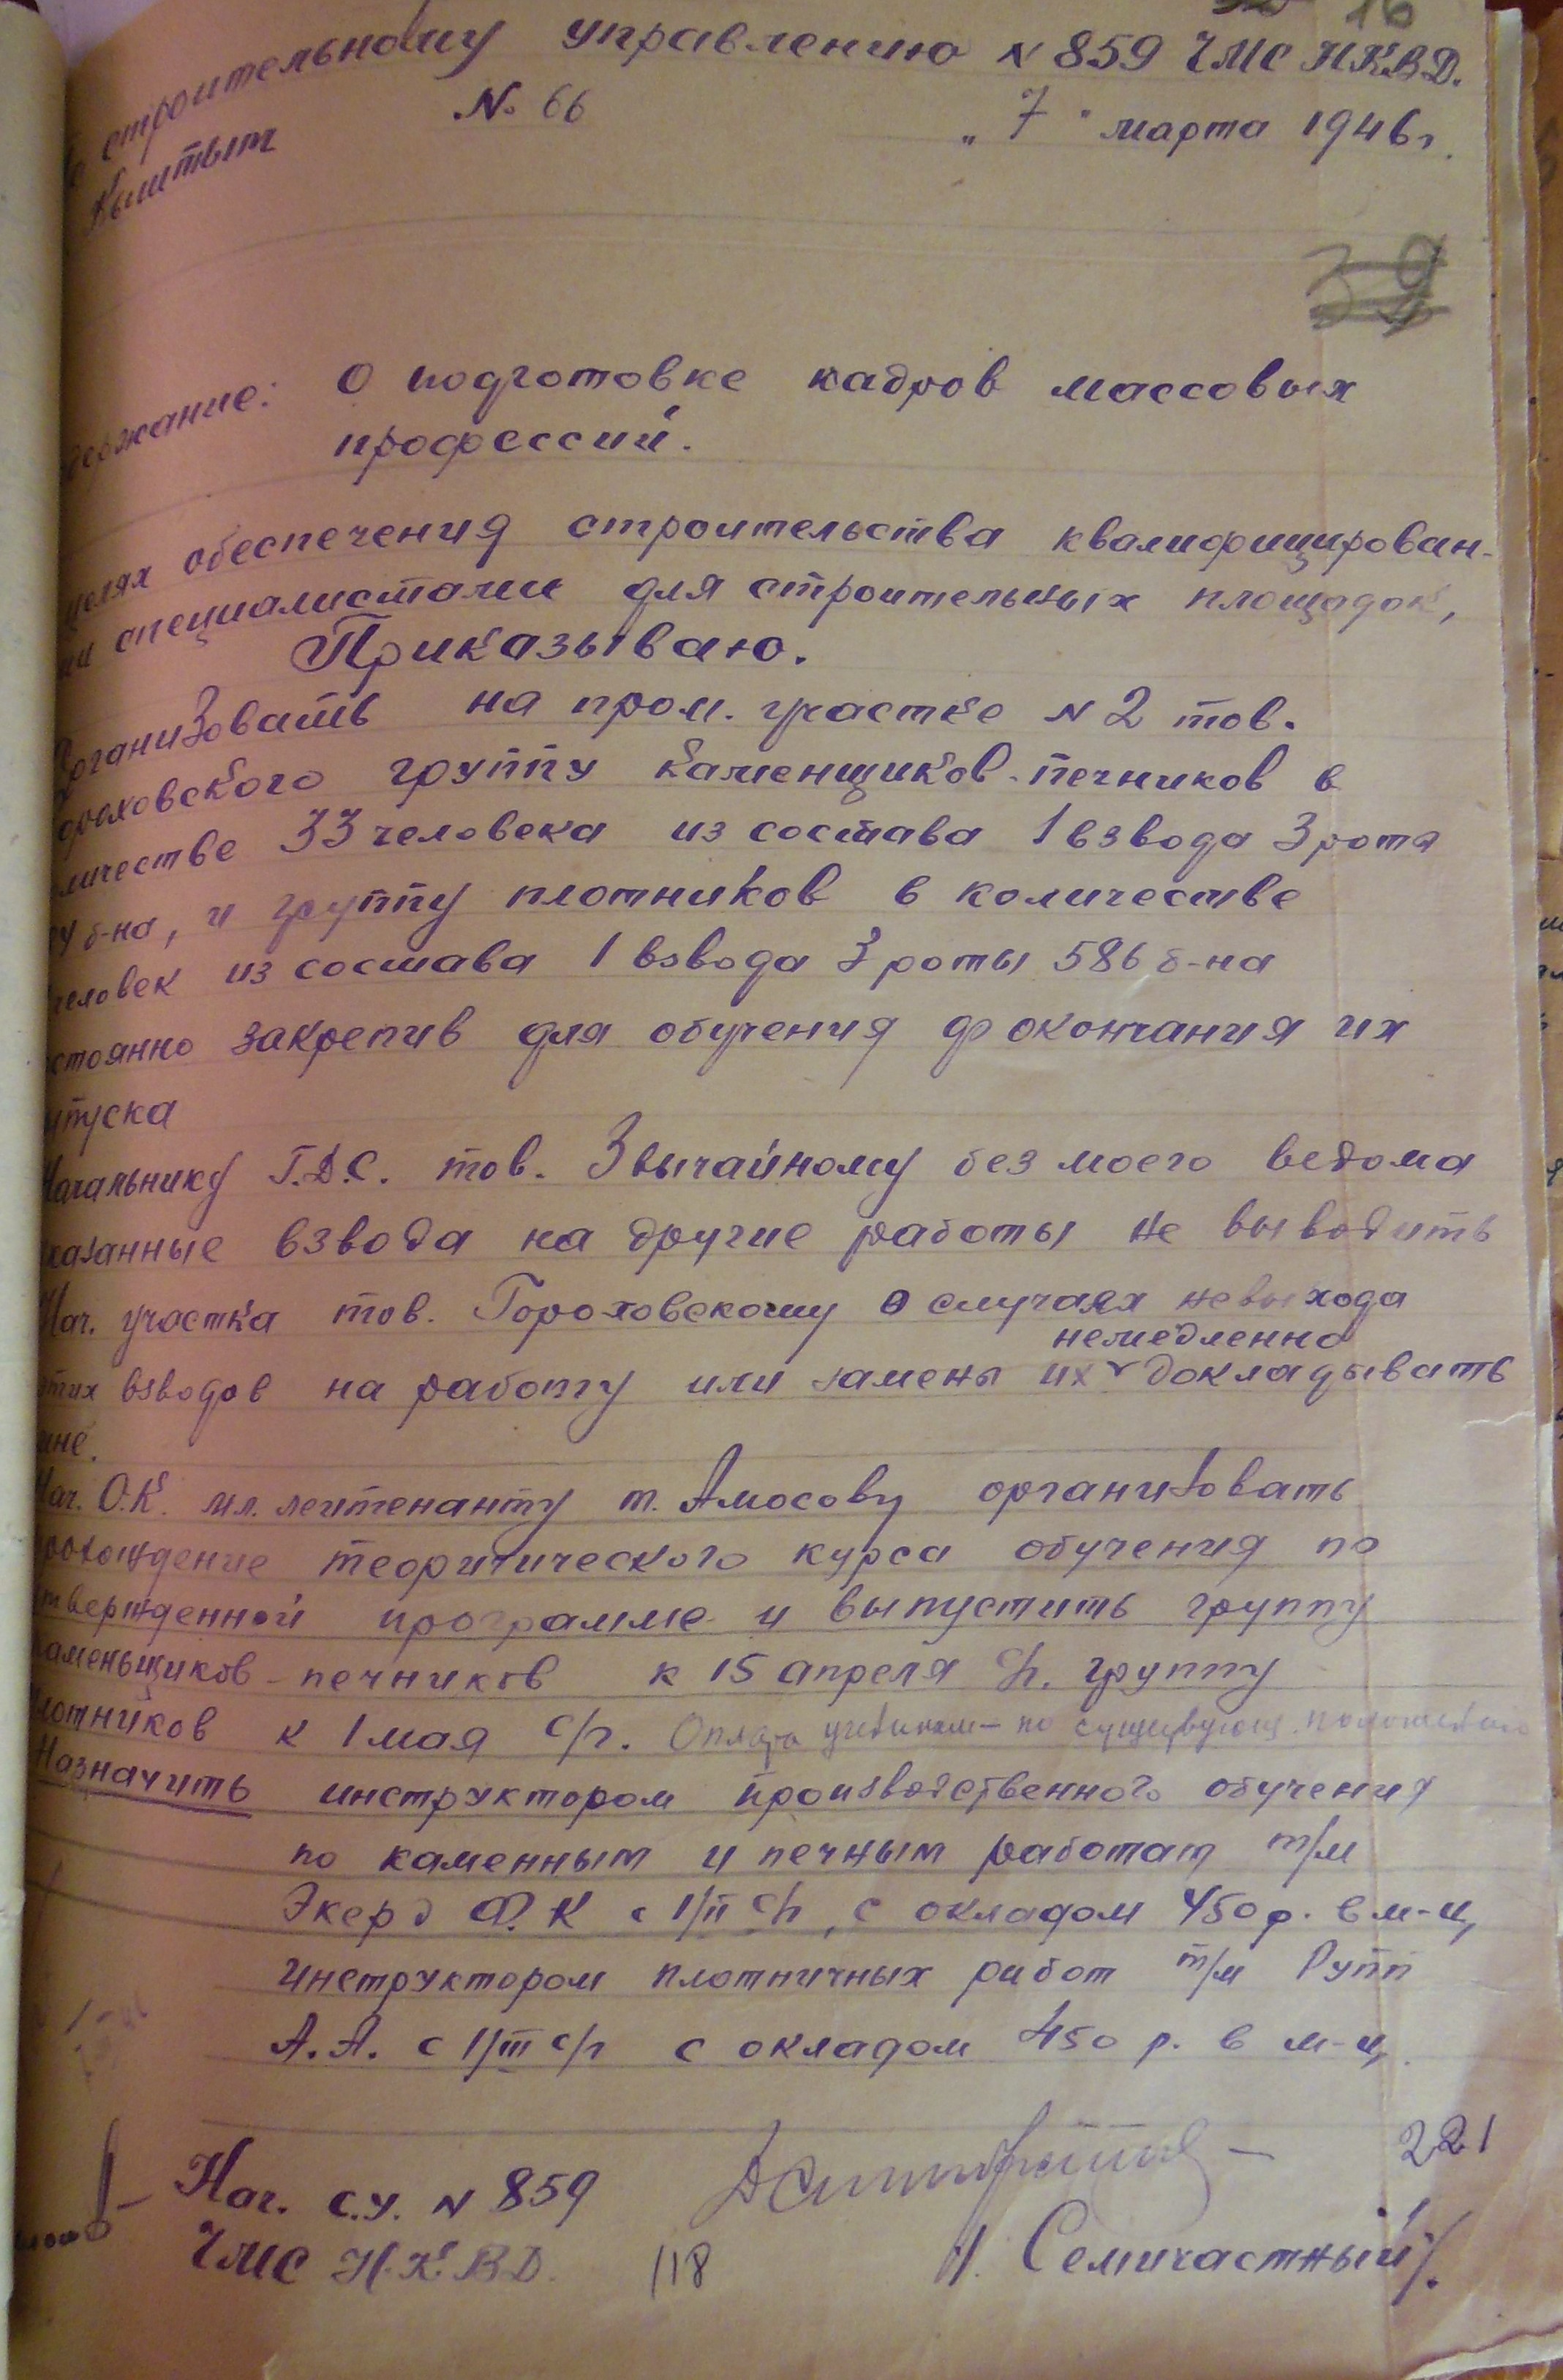 16
строительному управлению N 859 ЧМС НКВД.
Кыштым
№ 66 „7" марта 1946г.
39
держание: О подготовке кадров массовых
профессий.
целях обеспечения строительства квалифицирован-
ми специалистами для строительных площадок,
Приказываю.
Организовать на пром. участке N 2 тов.
ороховского группу каменщиков-печников в
личестве 33 человека из состава 1 взвода 3 рота
б-на, и группу плотников в количестве
человек из состава 1 взвода 3 роты 586 б-на
стоянно закрепив для обучения до окончания их
ыпуска
Начальнику Г.Д.С. тов. Звычайному без моего ведома
казанные взвода на другие работы не выводить
Нач. участка тов. Гороховскому о случаях невыхода
немедленно
этих взводов на работу или замены их докладывать
мне.
Нач. О.К. мл. лейтенанту т. Амосову организовать
рохождение теоритического курса обучения по
твержденной программе и выпустить группу
аменьщиков-печников к 15 апреля с/г. группу
лотников к 1 мая с/г. Оплата ученикам - по существующ. положению
Назначить инструктором производственного обучения
по каменным и печным работам т/м
Экерд Ф.К с 1/II с/г, с окладом 450 р. в м-ц,
инструктором плотничных работ т/м Рупп
А.А. с 1/III с/г с окладом 450 р. в м-ц.
221
Нач. С.У. N 859
ЧМС Н.К.В.Д. 118 /. Семичастный/.